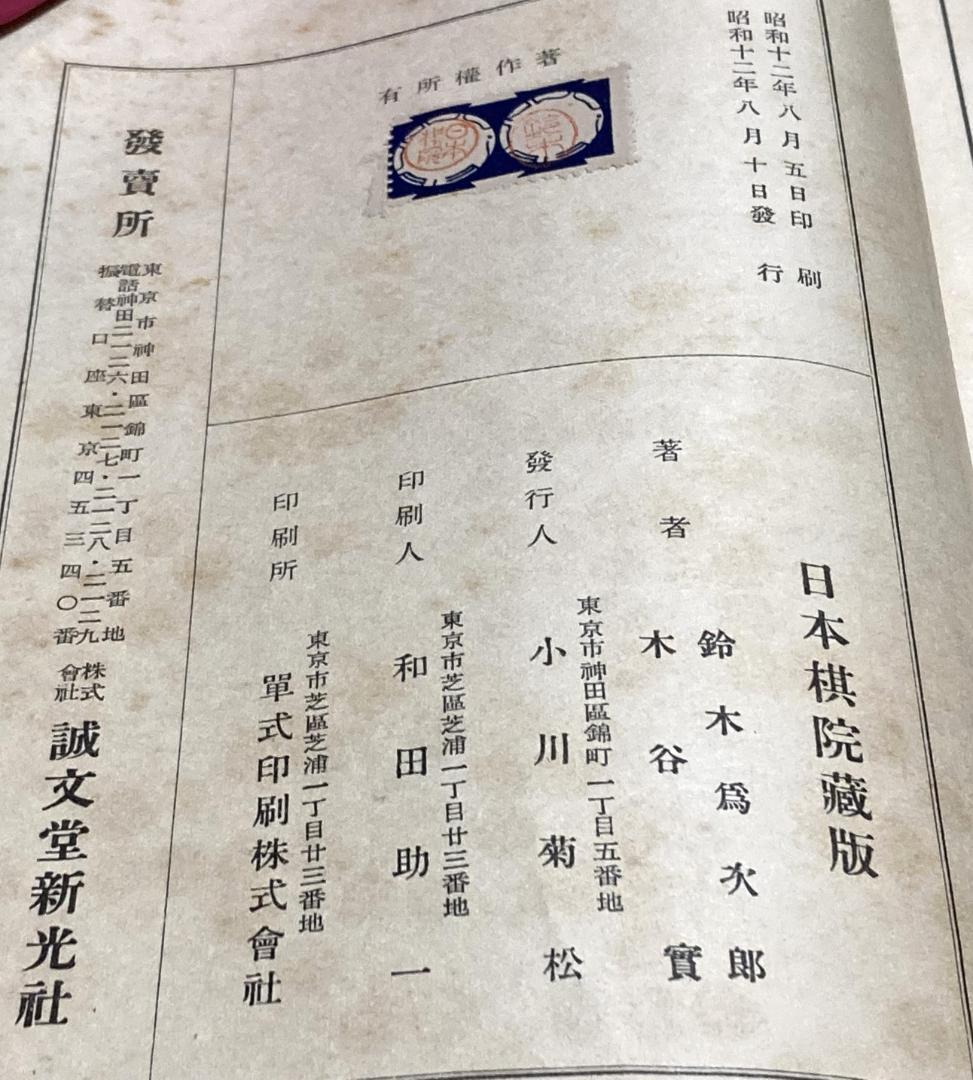 昭和十二年八月五日印刷
昭和十二年八月十日發行
著作權所有
日本棋院藏版
著者
鈴木爲次郎
木谷實
發行人
東京市神田區錦町一丁目五番地
小川菊松
印刷人
東京市芝區芝浦一丁目廿三番地
和田助一
印刷所
東京市芝區芝浦一丁目廿三番地
單式印刷株式會社
發賣所
東京市神田區錦町一丁目五番地
電話神田二一二六・二一二七・二一二八・二一二九
振替口座東京四五三四〇番
株式會社
誠文堂新光社